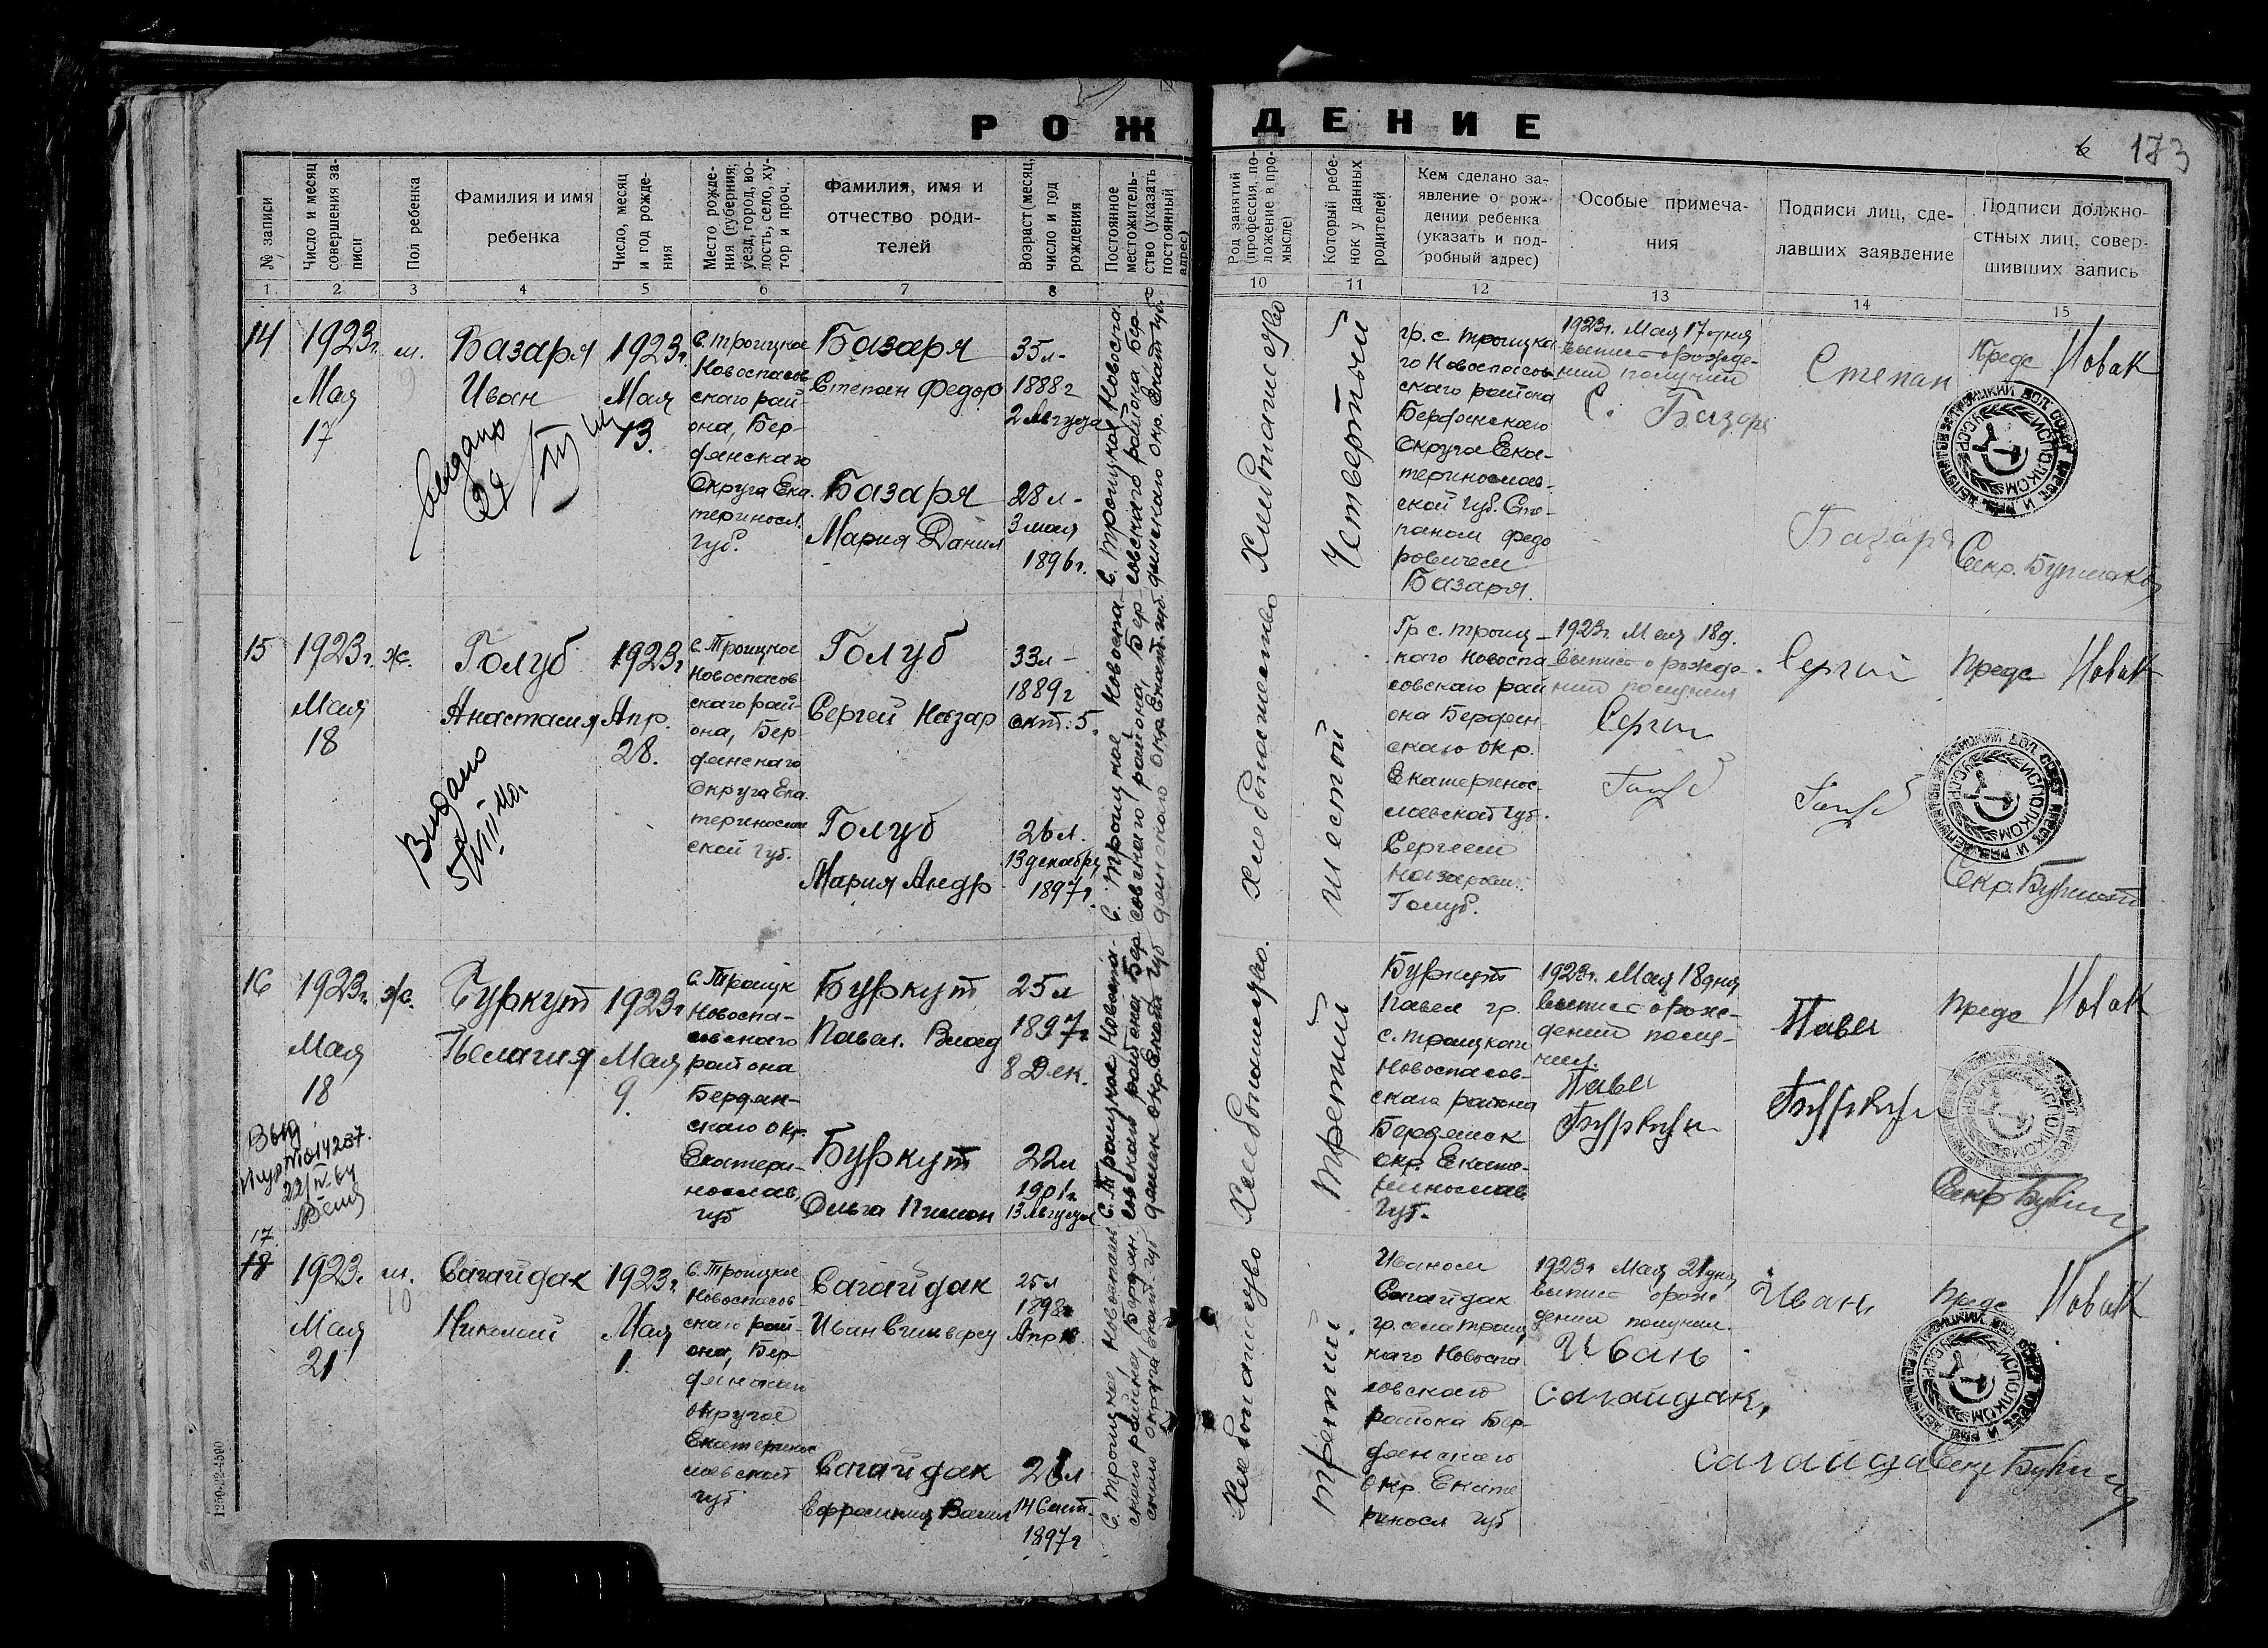 РОЖДЕНИЕ
173
№ записи
Число и месяц совершения записи
Пол ребенка
Фамилия и имя ребенка
Число, месяц и год рождения
Место рождения (губерния; уезд, город, волость, село, хутор и проч.
Фамилия, имя и отчество родителей
Возраст (месяц, число и год рождения
Постоянное местожительство (указать постоянный адрес)
Род занятий (профессия, положение в промысле)
Который ребенок у данных родителей
Кем сделано заявление о рождении ребенка (указать и подробный адрес)
Особые примечания
Подписи лиц, сделавших заявление
Подписи должностных лиц, совершивших запись
1 2 3 4 5 6 7 8 10 11 12 13 14 15
14
1923г.
Мая
17
м.
Базаря
Иван
1923г
Мая
13.
с. Троицкое
Новоспасов
скаго рай-
она, Бер-
дянскаго
Округа Ека.
териносл.
Губ.
Базаря
Степан Федор
35л-
1888г
2 Августа
Базаря
Мария Данил
28л-
3 мая
1896г.
Хлебопашество
Четвертый
гр. с. Троицка
го Новоспасов
скаго района
Бердянскаго
Округа Ека-
теринослав-
ской Губ. Сте-
паном Федо
ровичем
Базаря.
1923г. Мая 17 дня
выпись о рожде-
нии получил
С. Базаря
Степан
Базаря
Предс Новак
Секр.
15
1923г.
Мая
18
ж.
Голуб
Анастасия
1923г
Апр.
28.
Видано
с. Троицкое
Новоспасов
скаго рай-
она, Бер
дянскаго
Округа Ека.
теринослав
ской Губ.
Голуб
Сергей Назар
33л-
1889г
окт. 5.
Голуб
Мария Андр
26л.
13 декабря
1897г.
Хлебопашество
шестой
Гр с. Троиц-
каго Новоспа
совскаго рай
она Бердян
скаго окр.
Екатеринос-
лавской Губ.
Сергеем
Назаров.
Голуб.
1923г. Мая 18д.
выпись о рожде-
нии получил
Сергий
Голуб
Сергий
Голуб
Предс Новак
Секр.
16
1923г.
Мая
18
ж.
Буркут
Пелагия
1923г
Мая
9.
с. Троицк
Новоспа-
совскаго
района
Бердян-
скаго окр.
Екатери-
нослав,
губ
Буркут
Павел. Влад
25л
1897г
8 Дек.
Буркут
Ольга Пимон
22л
1901г.
13 Августа
Хлебопашество.
Третий
Буркут
Павел гр.
с. Троицкаго
Новоспасов-
скаго района
Бердянск
окр. Екате-
ринослав
Губ.
1923г. Мая 18 дня
выпись о рож-
дении полу-
чил.
Павел
Буркут
Павел
Буркут
Предс Новак
Секр
17.
18
1923г.
Мая
21
м.
10
Сагайдак
Николай
1923г.
Мая
1.
с. Троицкое
Новоспасов-
скаго рай-
она, Бер
дянскаго
округа
Екатеринос
лавской
губ
Сагайдак
Иван
25л
1898г
Апр
Сагайдак
Ефросиния Васил
14 Сент.
1897г
Хлебопашество
Третий.
Иваном
Сагайдак
гр. села Троиц
каго Новоспа
совскаго
района Бер-
дянскаго
окр. Екате
риносл губ
1923г Мая 21 дня
выпись о рож
дении получил.
Иван
Сагайдак,
Иван
Сагайдак
Предс Новак
Секр
1250-22-4590